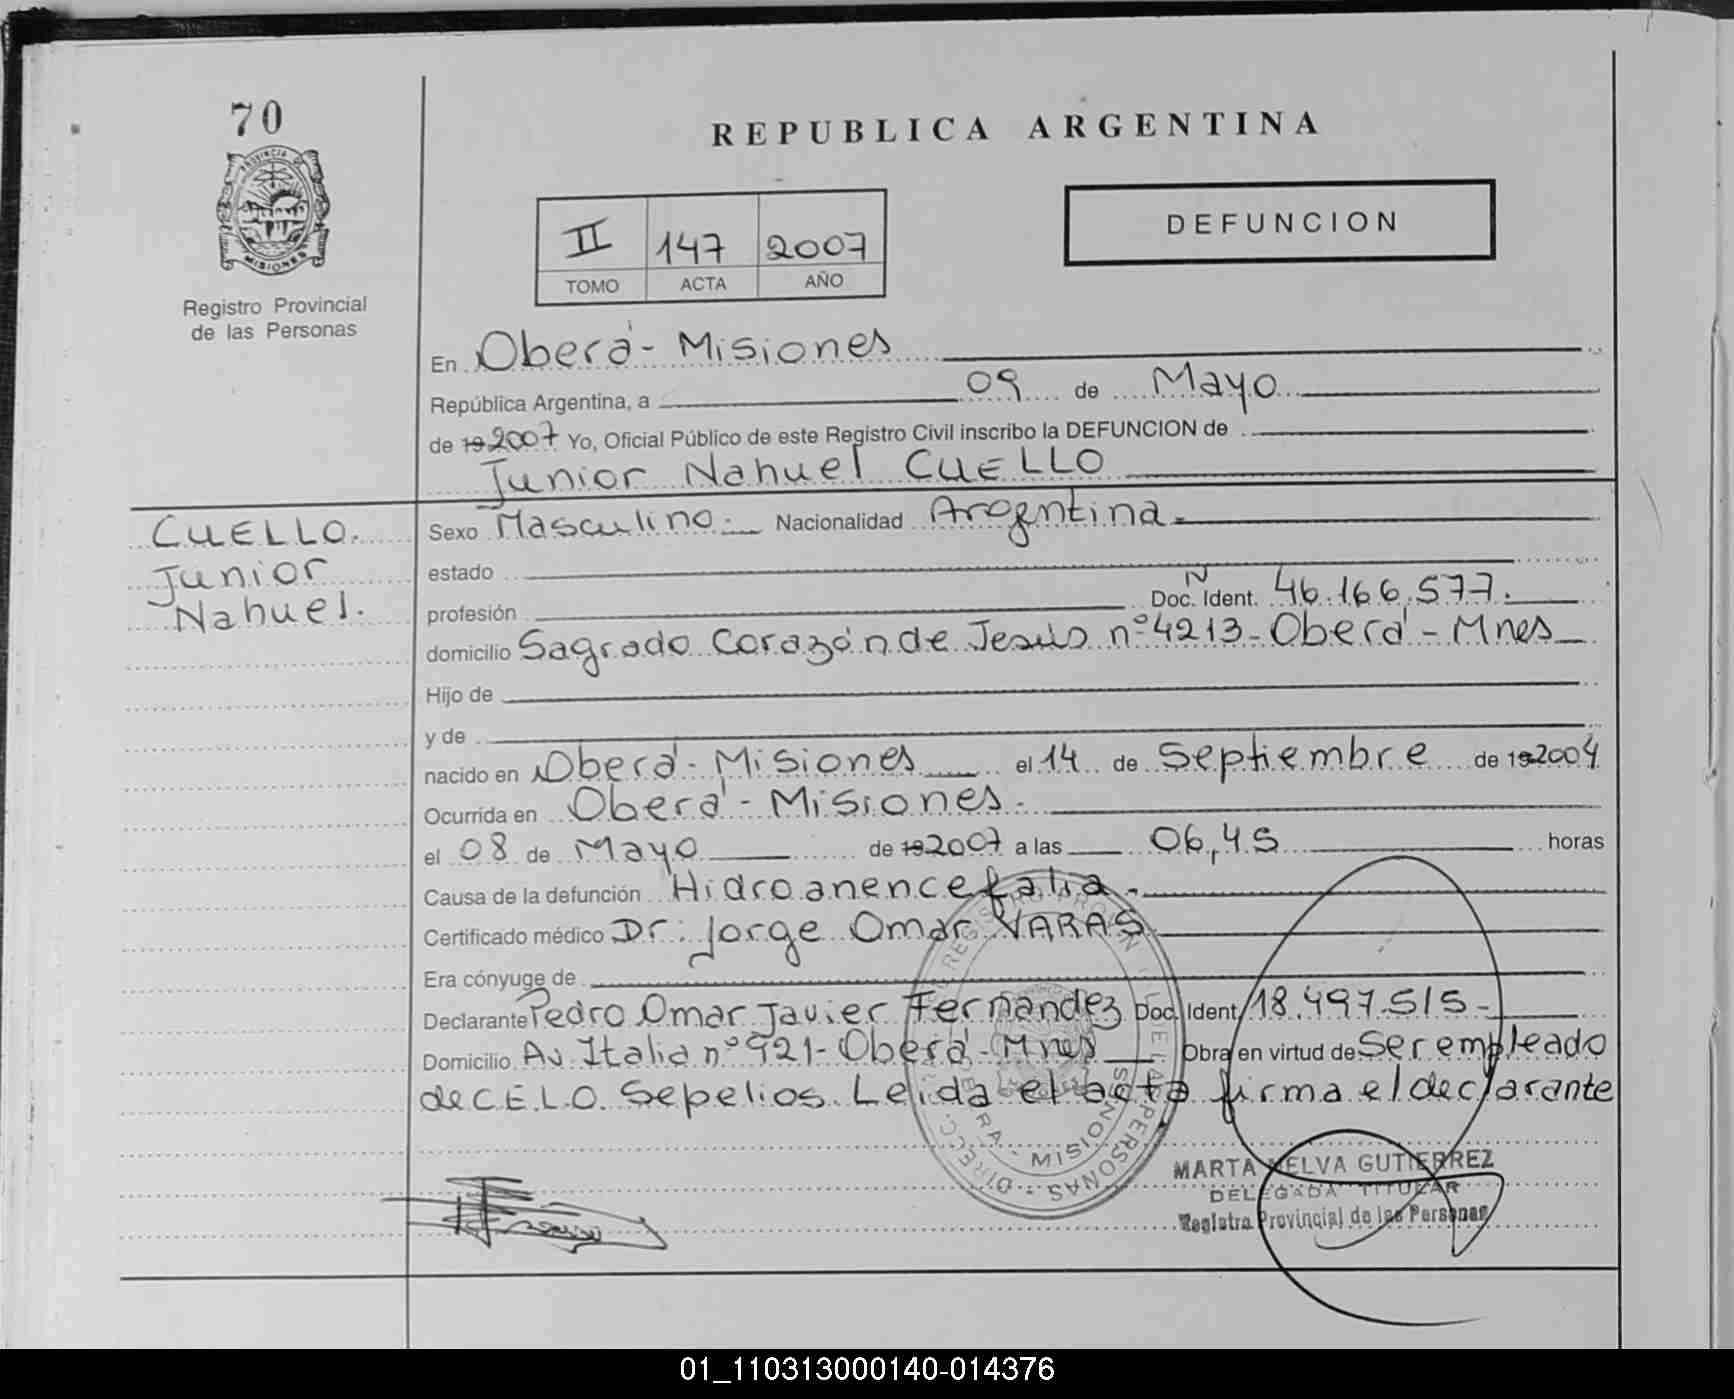 70
PROVINCIA DE
MISIONES
Registro Provincial
de las Personas
REPUBLICA ARGENTINA
II 147 2007
TOMO ACTA AÑO
DEFUNCION
En Oberá - Misiones
República Argentina, a 09 de Mayo
de 19 2007 Yo, Oficial Público de este Registro Civil inscribo la DEFUNCION de
Junior Nahuel CUELLO
CUELLO.
Junior
Nahuel.
Sexo Masculino.- Nacionalidad Argentina.-
estado
profesión Doc. Ident. N 46.166.577.
domicilio Sagrado Corazón de Jesús nº 4213 - Oberá - Mnes
Hijo de
y de
nacido en Oberá - Misiones el 14 de Septiembre de 19 2004
Ocurrida en Oberá - Misiones.-
el 08 de Mayo de 19 2007 a las 06,45 horas
Causa de la defunción Hidroanencefalia.-
Certificado médico Dr: Jorge Omar VARAS
Era cónyuge de
Declarante Pedro Omar Javier Fernandez Doc. Ident. 18.497.515-
Domicilio Av. Italia nº 921 - Oberá - Mnes Obra en virtud de Ser empleado
de C.E.L.O. Sepelios. Leida el acta firma el declarante
MARTA NELVA GUTIERREZ
DELEGADA TITULAR
Registro Provincial de las Personas
01_110313000140-014376